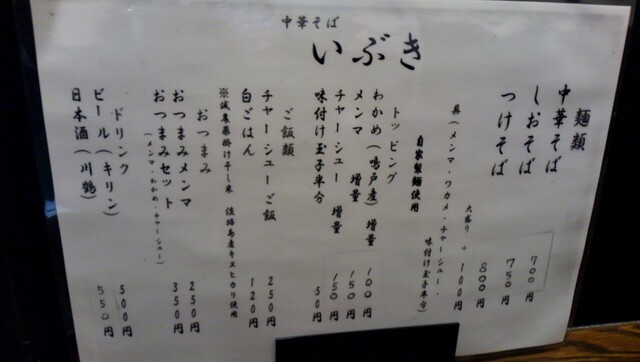 中華そば
いぶき
麺類
中華そば 700円
しおそば 750円
つけそば 800円
大盛り + 100円
具(メンマ・ワカメ・チャーシュー・
味付け玉子半分)
自家製麺使用
トッピング
わかめ(鳴戸産)増量 100円
メンマ 増量 150円
チャーシュー 増量 150円
味付け玉子半分 50円
ご飯類
チャーシューご飯 250円
白ごはん 120円
※減農薬掛け干し米 淡路島産キヌヒカリ使用
おつまみ
おつまみメンマ 250円
おつまみセット 350円
(メンマ・わかめ・チャーシュー)
ドリンク
ビール(キリン) 500円
日本酒(川鶴) 550円